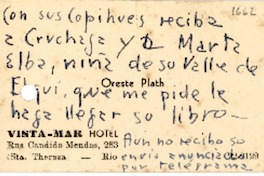 Con sus copihues reciba
1662
a Cruchaga y a Marta
Elba, niña de su Valle de
Oreste Plath
Elqui, que me pide le
haga llegar su libro-
VISTA-MAR HOTEL
Rua Candido Mendes, 283
Aun no recibo su
Sta. Thereza — Rio
envío anunciado
por telegrama